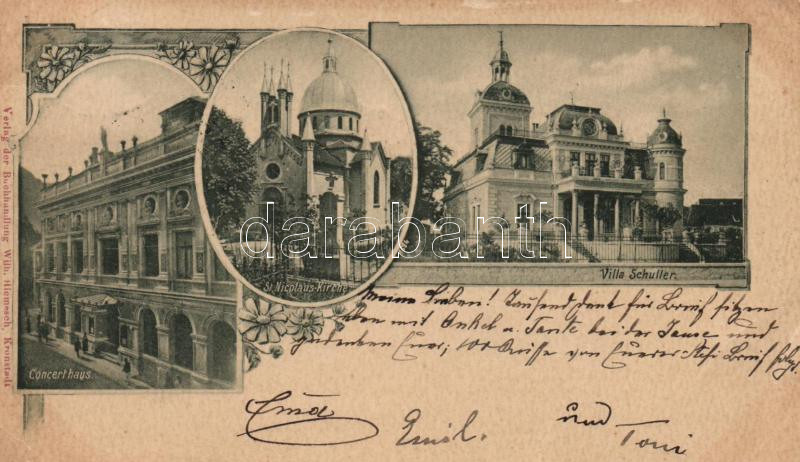 Verlag der Buchhandlung Wilh. Hiemesch, Kronstadt
Concerthaus.
St Nicolaus-Kirche
Villa Schuller.
darabanth
Meine Lieben! Tausend dank für Brief sitzen
eben mit Onkel u. Tante bei der Jause und
gedenken Euer; 100 Grüsse von Euerer Brief folgt.
Erna
Emil.
und
Toni